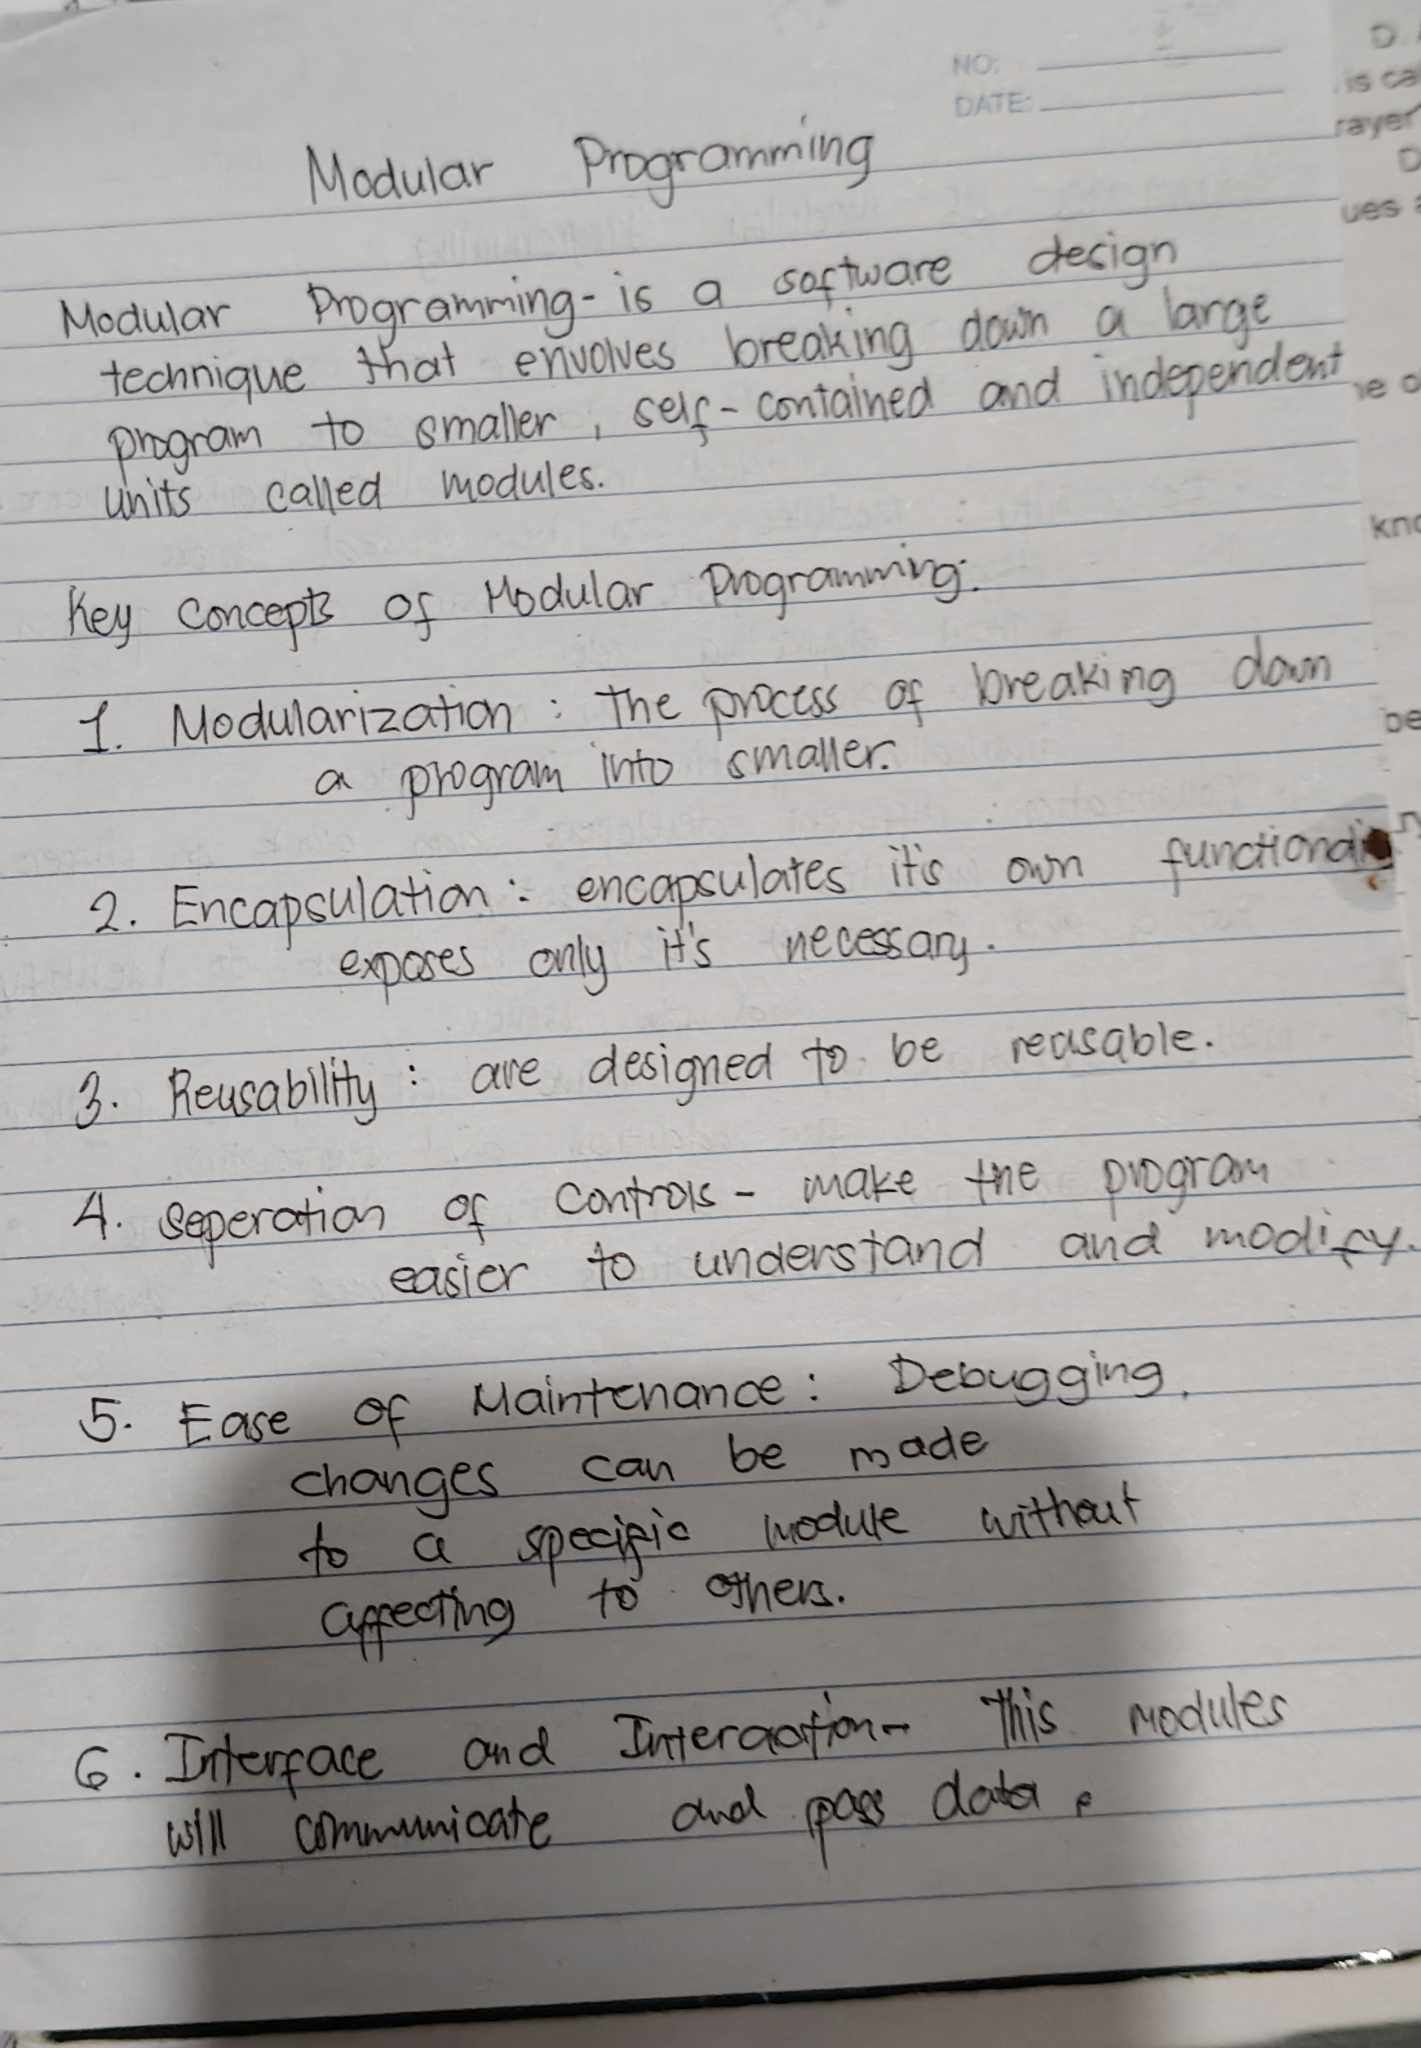 NO:
DATE:
Modular Programming
Modular Programming - is a software design
technique that envolves breaking down a large
program to smaller, self-contained and independent
units called modules.
Key Concepts of Modular Programming:
1. Modularization : the process of breaking down
a program into smaller.
2. Encapsulation : encapsulates it's own
exposes only it's necessary.
3. Reusability : are designed to be reusable.
4. Seperation of Controls - make the program
easier to understand and modify.
5. Ease of Maintenance : Debugging,
changes can be made
to a specific module without
affecting to others.
6. Interface and Interaction - This modules
will communicate and pass data.
D.
is ca
rayer
D
ues
kno
be